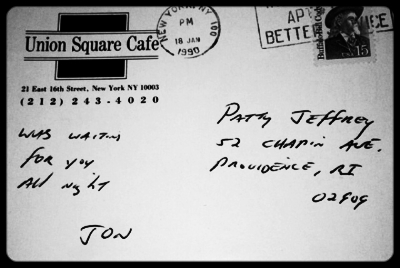 Union Square Cafe
21 East 16th Street, New York NY 10003
(212) 243-4020
NEW YORK, NY 100
PM
18 JAN
1990
AP
BETTE
Buffalo Bill Cody
15
WAS WAITING
FOR YOU
All Night
JON
PATTY JEFFREY
52 CHAPIN AVE.
PROVIDENCE, RI
02909